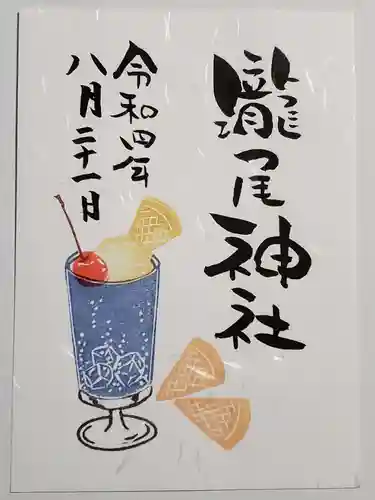 瀧尾神社
令和四年
八月二十一日